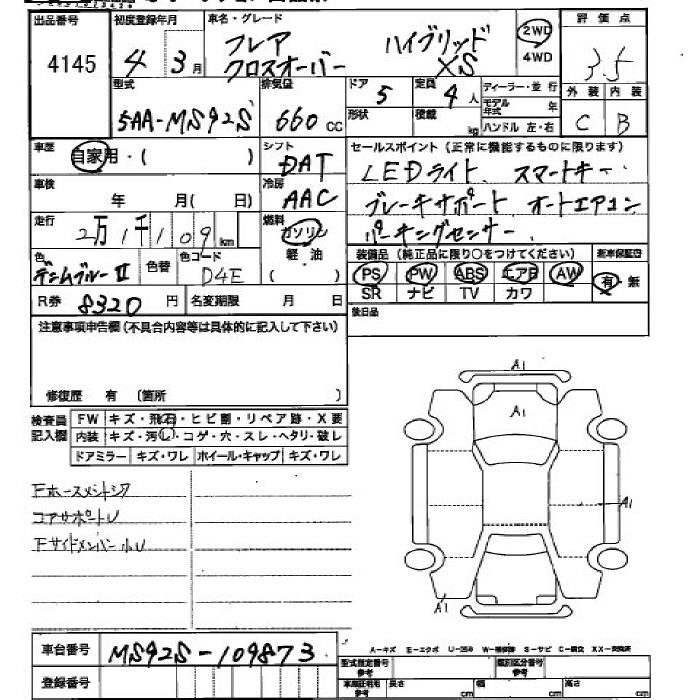 出品番号 初度登録年月 車名・グレード 2WD 評価点
4145 4年 3月 フレア ハイブリッド 4WD 3.5
クロスオーバー XS
型式 排気量 ドア 5 定員 4人 ディーラー・並行 外装 内装
5AA-MS92S 660cc 形状 積載 kg モデル年式 年 C B
ハンドル 左・右
車歴 自家用・( ) シフト DAT セールスポイント(正常に機能するものに限ります)
LEDライト、スマートキー、
車検 年 月( 日) 冷房 AAC ブレーキサポート、オートエアコン
走行 2万1千109km 燃料 ガソリン パーキングセンサー、
軽油
( )
色 デニムブルーⅡ 色替 色コード D4E 装備品(純正品に限り○をつけてください) 新車保証書
PS PW ABS エアB AW 有・無
R券 8320円 名変期限 月 日 SR ナビ TV カワ
注意事項申告欄(不具合内容等は具体的に記入して下さい) 後日品
修復歴 有 (箇所 )
検査員記入欄 FW キズ・飛石・ヒビ割・リペア跡・X要
内装 キズ・汚れ・コゲ・穴・スレ・ヘタリ・破レ
ドアミラー キズ・ワレ ホイール・キャップ キズ・ワレ
A1
A1
A1
A1
コアサポートU
Fサイドメンバー小U
車台番号 MS92S-109873
A-キズ E-エクボ U-凹み W-補修跡 S-サビ C-腐蝕 XX-交換済
登録番号 型式指定番号 参考 類別区分番号 参考
車庫証明用 参考 長さ cm 幅 cm 高さ cm